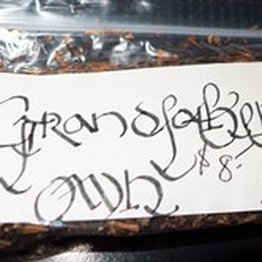 Grandfather
$8-
Own